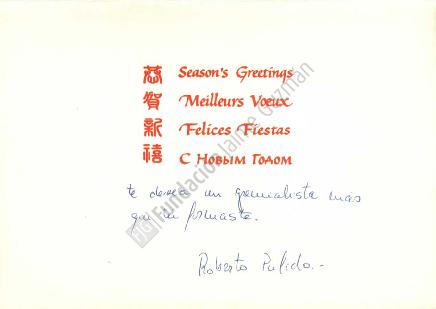 恭 Season's Greetings
賀 Meilleurs Vœux
新 Felices Fiestas
禧 С Новым Годом
te desea un gremialista más
que tu formaste.
Roberto Pulido.-
Fundación Jaime Guzmán